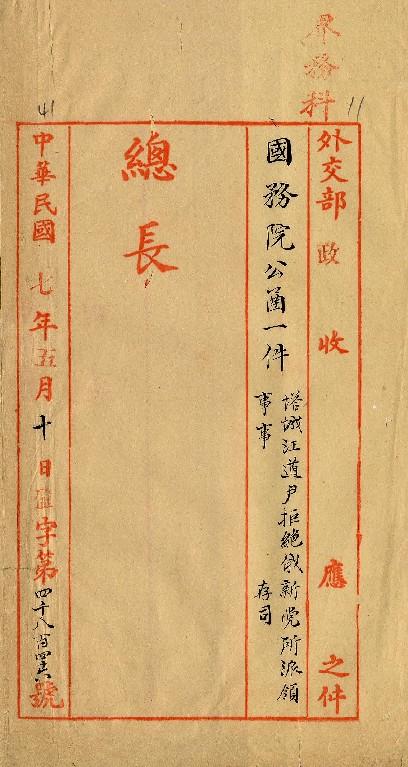 界務科
11
外交部 政 收 應 之件
國務院公函一件
塔城江道尹拒絕俄新党所派領
事事 存司
總長
41
中華民國 七年五月十日 字第四千八百四六號